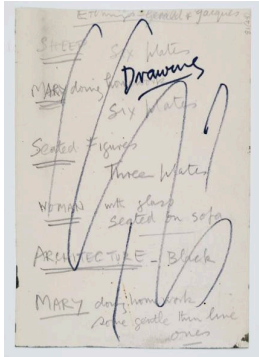 SHEEP Six plates
Drawing
MARY doing
Six plates
Seated Figures
Three plates
WOMAN with glass
seated on sofa
ARCHITECTURE - Black
MARY doing homework.
some gentle thin line
ones